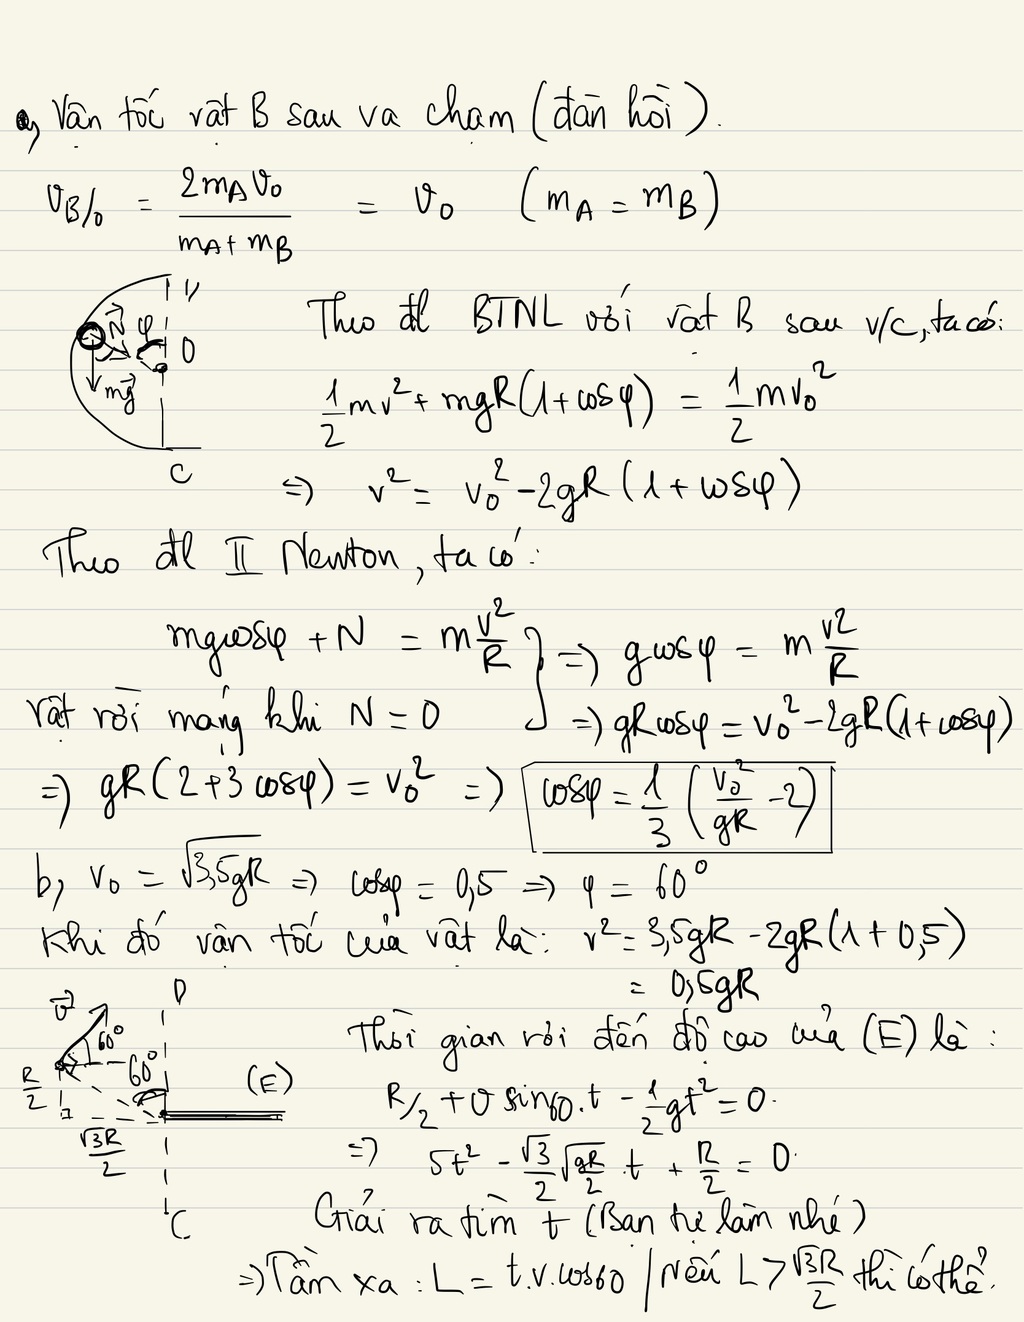 a, Vận tốc vật B sau va chạm (đàn hồi).
v_B/0 = 2m_A v_0 / (m_A + m_B) = v_0 (m_A = m_B)
D
N φ
O
mg
C
Theo đl BTNL với vật B sau v/c, ta có:
1/2 mv² + mgR(1+cosφ) = 1/2 mv_0²
=> v² = v_0² - 2gR(1+cosφ)
Theo đl II Newton, ta có:
mgcosφ + N = m v²/R } => gcosφ = m v²/R
vật rời máng khi N = 0 => gRcosφ = v_0² - 2gR(1+cosφ)
=> gR(2+3cosφ) = v_0² => cosφ = 1/3 (v_0²/gR - 2)
b, v_0 = √3,5gR => cosφ = 0,5 => φ = 60°
Khi đó vận tốc của vật là: v² = 3,5gR - 2gR(1+0,5)
= 0,5gR
D
v
60°
60°
R/2
(E)
√3R/2
C
Thời gian rơi đến độ cao của (E) là:
R/2 + v sin60.t - 1/2 gt² = 0.
=> 5t² - √3/2 √gR/2 .t + R/2 = 0.
Giải ra tìm t (Bạn tự làm nhé)
=> Tầm xa: L = t.v.cos60 / Nếu L > √3R/2 thì có thể.